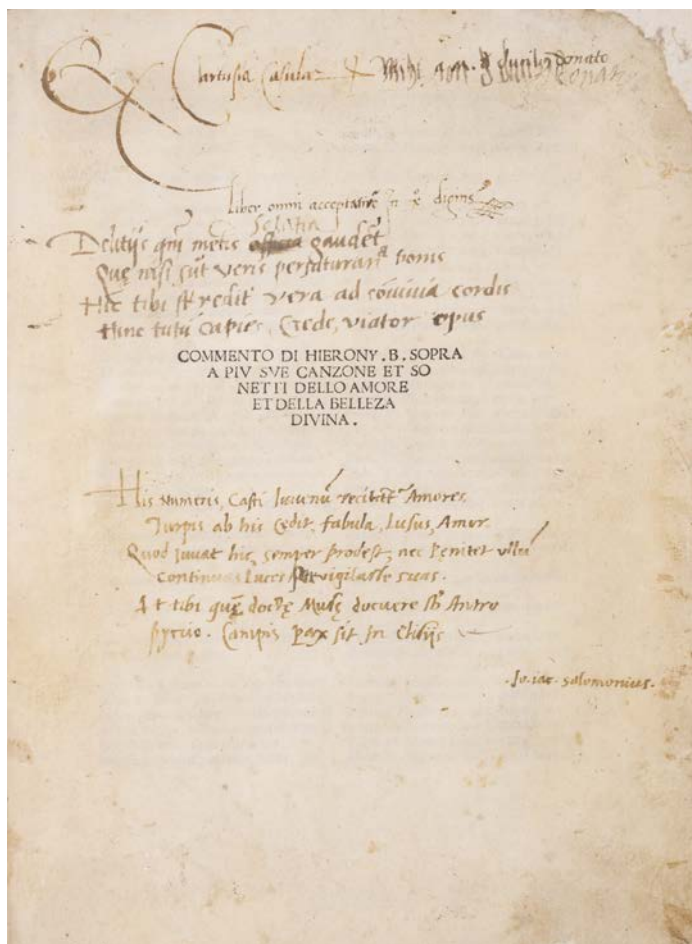 Cartusia Casular
Donato
Liber omni acceptatione dignus
Solatia
Delitijs gaudet
Que nisi sut veris pomis
Hic tibi redit vera ad cordis
Hinc tutu capies, Crede, viator opus
COMMENTO DI HIERONY . B. SOPRA
A PIV SVE CANZONE ET SO
NETTI DELLO AMORE
ET DELLA BELLEZA
DIVINA .
His Numeris, Casti Iuvenū recitēt Amores,
Turpis ab his Cędit, fabula, Lusus, Amor.
Quod juvat hic, semper prodest, nec Pęnitet ullū
Continuas Luces vigilasse suas.
At tibi quę doctę Musę docuere Antro
Campis pax sit In Elisijs
. Jo. iac. Solomonius .